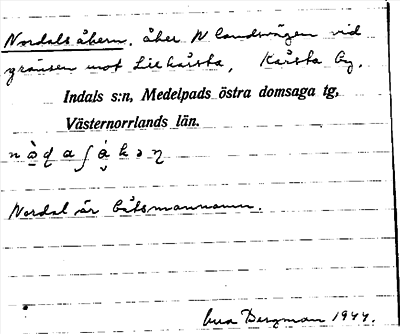 Nordalsåkern, åker N landsvägen vid
gränsen mot Lillkårsta, Kårsta by,
Indals s:n, Medelpads östra domsaga tg,
Västernorrlands län.
Nordal är båtsmansnamn.
Bergman 1944.